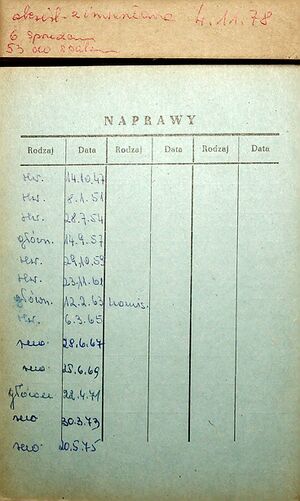 4.11.78
6
53 do
NAPRAWY
Rodzaj Data Rodzaj Data Rodzaj Data
rew. 14.10.47
rew. 8.1.51
rew. 28.7.54
główn. 14.9.57
rew. 29.10.59
rew. 23.11.61
główn. 12.2.63
rew. 6.3.65
rewo 28.6.67
rewo 25.6.69
główna 22.4.71
rewo 30.3.73
rewo 20.5.75